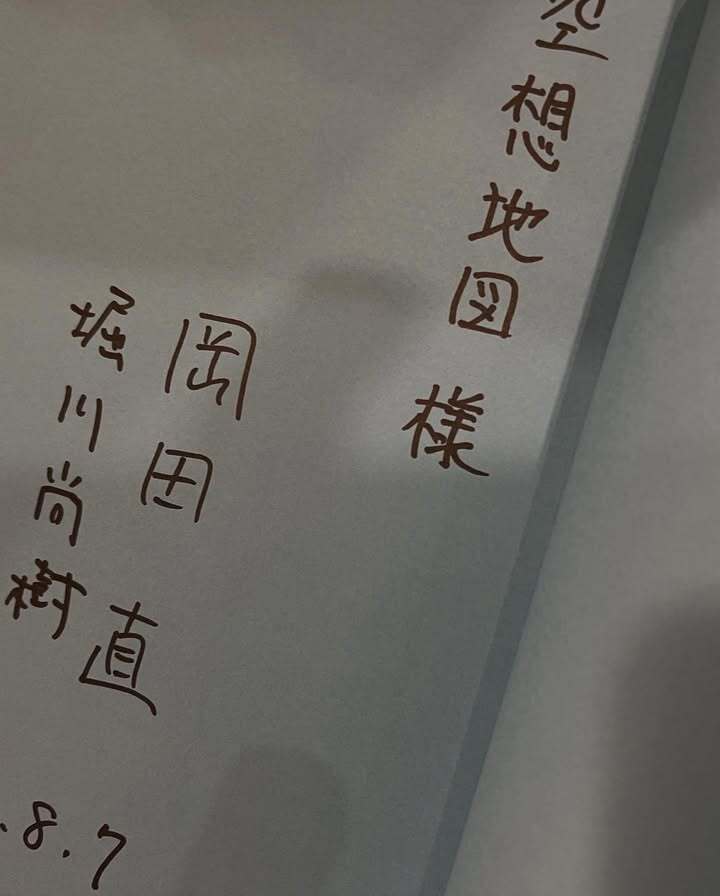 空想地図 様
岡田 直
堀川尚樹
.8.7